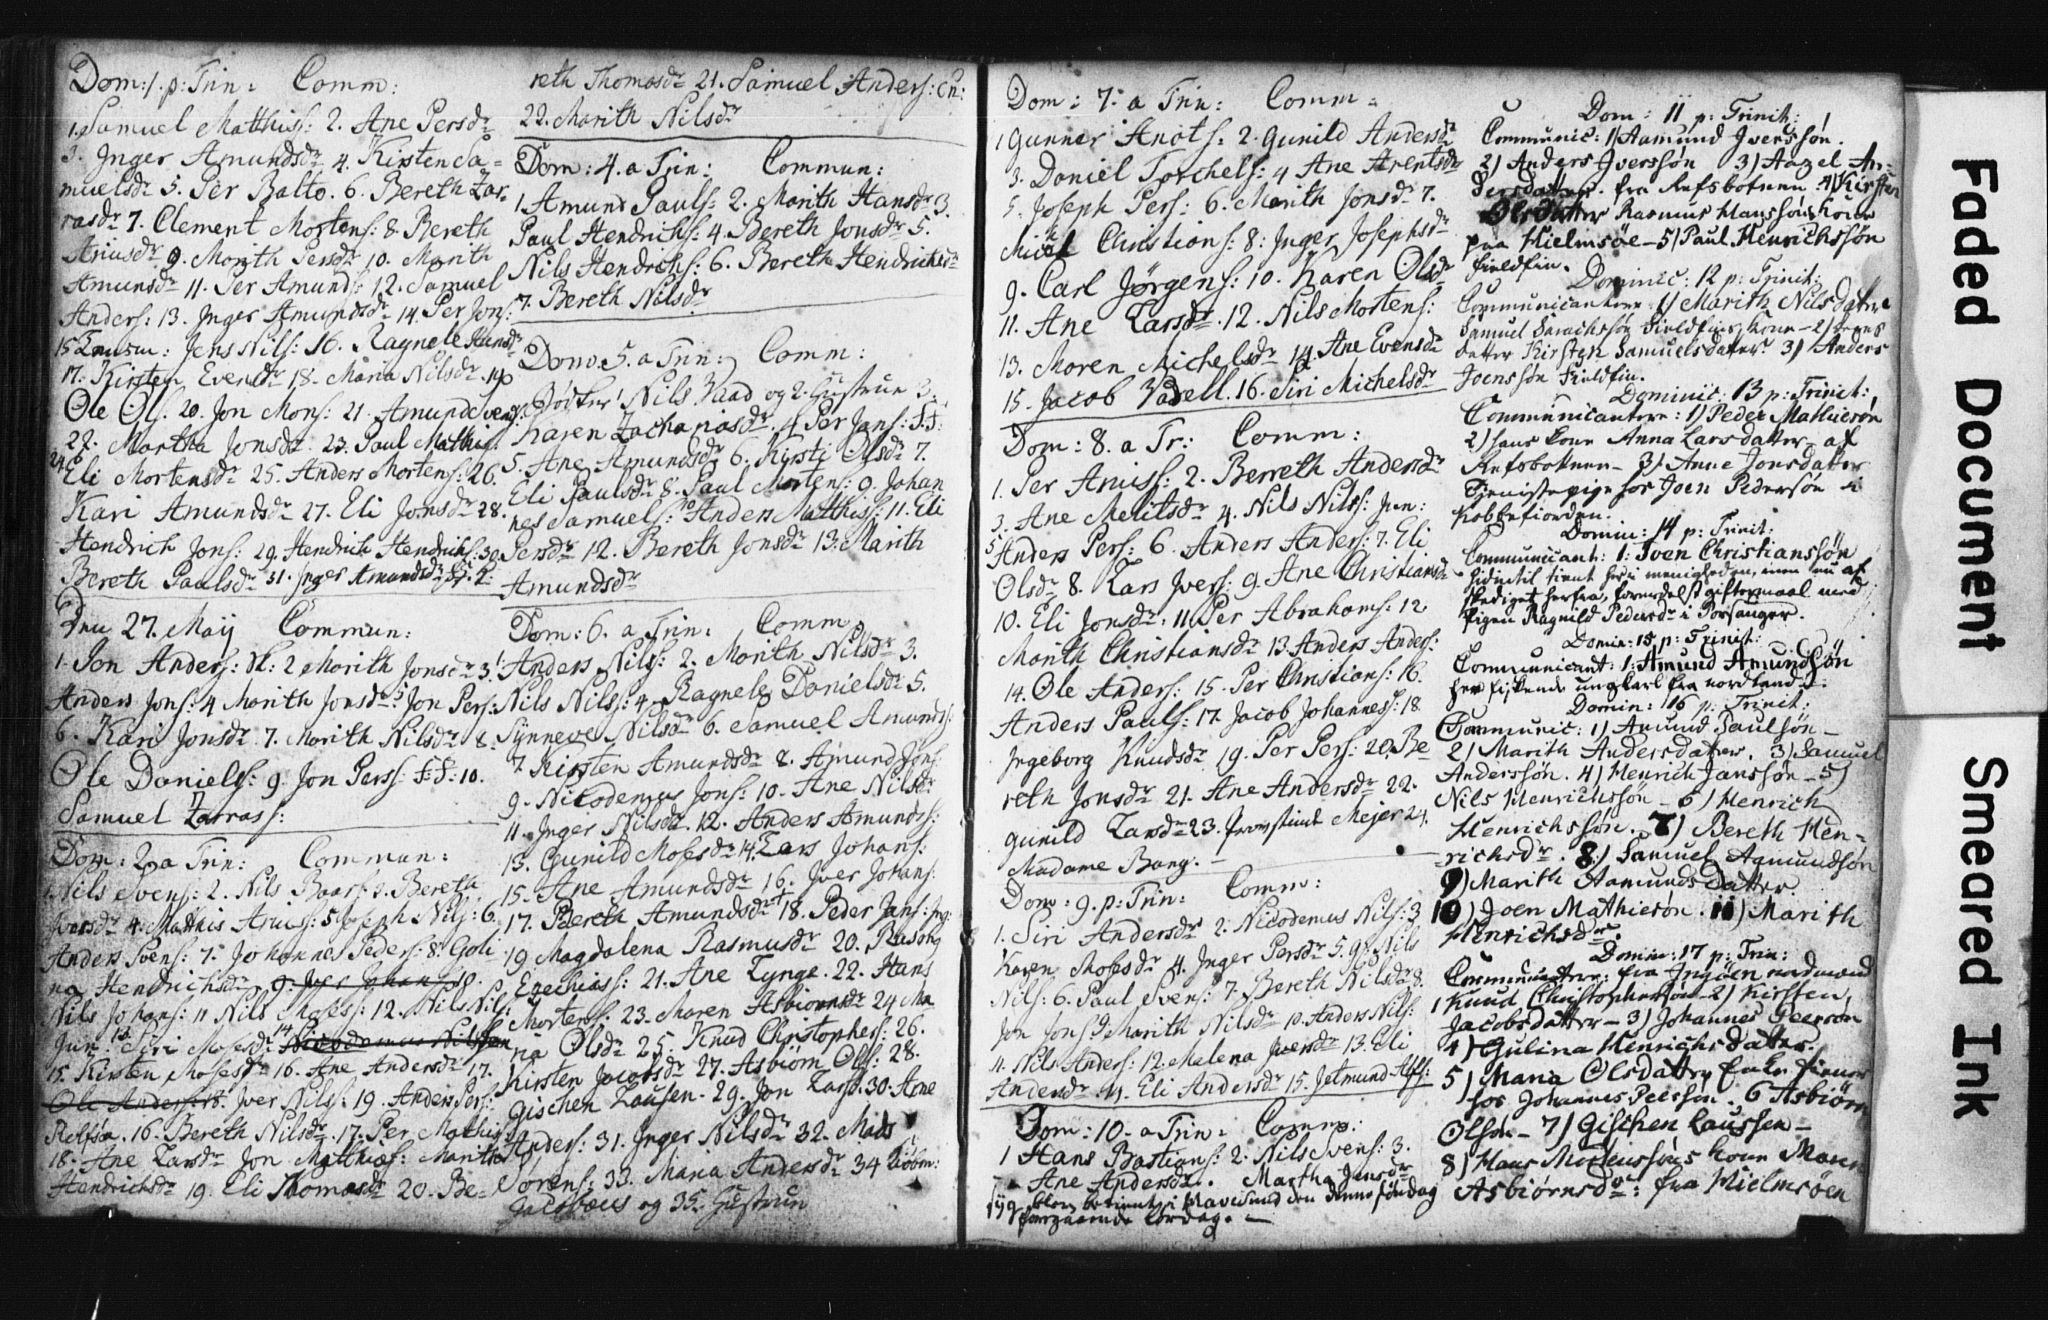 Dom: 1. p: Trin: Comm:
1. Samuel Matthiss: 2. Ane Persdr
3. Inger Amundsdr 4. Kirsten Sa=
muelsdr 5. Per Balto. 6. Bereth Zar=
rasdr 7. Clement Mortens: 8. Bereth
Ariusdr 9. Marith Persdr 10. Marith
Amunsdr 11. Per Amunds: 12. Samuel
Anders: 13. Inger Amundsdr 14. Per Jons:
15 Jens Nils: 16. Ragnele
17. Kirsten Evensdr 18. Maria Nilsdr 19
Ole Ols: 20. Jon Mons: 21. Amund Svens:
22. Martha Jonsdr 23. Paul Mathis:
24. Eli Mortensdr 25. Anders Mortens: 26.
Kari Amundsdr 27. Eli Jonsdr 28.
Hendrich Jons: 29. Hendrich Hendrichs: 30
Bereth Paulsdr 31. Inger Amundsdr
Den 27. Maij Commun:
1. Jon Anders: 2 Marith Jonsdr 3.
Anders Jons: 4 Marith Jonsdr 5 Jon Pers:
6. Kari Jonsdr 7. Marith Nilsdr 8.
Ole Daniels: 9. Jon Perss: F:F: 10.
Samuel Zarras:
Dom: 2. a Trin: Commun:
1. Nils Svens: 2. Nils Baars: 3. Bereth
Iversdr 4. Matthis Arius: 5 Joseph Nils: 6.
Anders Svens: 7. Johannes Peders: 8. Goli
na Hendrichsdr 9. Iver Johans: 10.
Nils Johans: 11 Nils Moses: 12. Nils Nils:
Jun: 13. Siri Mosesdr 14. Nicodemus Nilssen
15. Kirsten Mosesdr 16. Ane Andersdr 17.
Ole Anders: 18. Iver Nils: 19. Anders Pers:
Refsøn. 16. Bereth Nilsdr 17. Per Mathis:
18. Ane Larsdr Jon Matthias: Marith
Hendrichsdr 19. Eli Thomasdr 20. Be=
reth Thomasdr 21. Samuel Anders: En:
22. Marith Nilsdr
Dom: 4. a Trin: Commun:
1. Amund Pauls: 2. Marith Hansdr 3.
Paul Hendrichs: 4. Bereth Jonsdr 5.
Nils Hendrichs: 6. Bereth Hendrichsdr
7. Bereth Nilsdr
Dom: 5. a Trin: Comm:
Bødker Nils Baad og 2. Gustrue 3.
Karen Zachariasdr 4 Per Jans: F:F:
5. Ane Amundsdr 6. Kirsti Olsdr 7.
Eli Paulsdr 8. Paul Mortens: 9. Johan
nes Samuels: 10 Anders Matthiss: 11. Eli
Persdr 12. Bereth Jonsdr 13. Marith
Amundsdr
Dom: 6. a Trin: Comm:
1. Anders Nils: 2. Marith Nilsdr 3.
Nils Nils: 4. Ragnele Danielsdr 5.
Synneve Nilsdr 6. Samuel Amunds:
7. Kirsten Amundsdr 8. Amund Jons:
9. Nicodemus Jons: 10. Ane Nilsdr
11. Inger Nilsdr. 12. Anders Amunds:
13. Gunild Mosesdr 14. Lars Johans:
15. Ane Amundsdr 16. Iver Johans:
17. Bereth Amundsdr 18. Peder Jans: Ing:
19 Magdalena Rasmusdr 20.
Ezechias: 21. Ane Lynge. 22. Hans
Mortens: 23. Maren Asbiørnsdr 24 Ma
ria Olsdr 25. Knud Christophers: 26.
Kirsten Jacobsdr 27. Asbiørn Ols: 28.
Gischen Lausen. 29. Jon Lars: 30. Arne
Anders: 31. Inger Nilsdr 32. Mads
Sørens: 33. Maria Andersdr 34 Kiøbm:
Jacobæus og 35. Gustrue
Dom: 7. a Trin: Comm:
1 Gunner Knots: 2. Gunild Andersdr
3. Daniel Torchels: 4 Ane Arentsdr
5. Joseph Pers: 6. Marith Jonsdr 7.
Michel Christians: 8. Inger Josephsdr
9. Carl Jørgens: 10. Karen Olsdr
11. Ane Larsdr 12. Nils Mortens:
13. Maren Michelsdr 14. Ane Evensdr
15. Jacob Vadell. 16. Siri Michelsdr
Dom: 8. a Tr: Comm:
1. Per Ariuss: 2. Berreth Andersdr
3. Ane Meletsdr 4. Nils Nils: Jun:
5 Anders Pers: 6. Anders Anders: 7. Eli
Olsdr 8. Lars Ivers: 9. Ane Christiansdr
10. Eli Jonsdr 11 Per Abrahams: 12
Marith Christiansdr 13 Anders Anders:
14. Ole Anders: 15. Per Christians: 16.
Anders Pauls: 17. Jacob Johanness: 18
Ingeborg Knudsdr 19. Per Pers: 20. Be
reth Jonsdr 21. Ane Andersdr 22.
Gunild Larsdr 23. Provstinde Mejer 24.
Madame Bang. —
Dom: 9. p: Trin: Comm:
1. Siri Andersdr 2. Nicodemus Nils: 3
Karen Mosesdr 4. Inger Persdr 5. Nils
Nils: 6. Paul Svens: 7. Bereth Nilsdr 8.
Jon Jons: 9 Marith Nilsdr 10. Anders Nils:
11. Nils Anders: 12. Malena Iversdr 13. Eli
Andersdr 14. Eli Andersdr 15. Jetmund Ols:
Dom: 10. a Trin: Comm:
1 Hans Bastians: 2. Nils Svens: 3.
Ane Andersdr. Martha Jansdr
blev betient i Havesund den denne søndag
foregaaende Lørdag. —
Dom: 11 p: Trinit:
Communic: 1) Aamund Iverssøn.
2) Anders Iverssøn 3) Aazel An=
dersdatter. fra Refsbotnen 4) Kirsten
Olsdatter Rasmus Hanssøns kone
paa Hielmsøe — 5) Paul Henrichssøn
fieldfin.
Dominic: 12 p: Trinit:
Communicantere 1) Marith Nilsdatter
Samuel Sarachssøn Fieldfins kone — 2) deres
datter Kirsten Samuelsdatter 3) Anders
Joenssøn Fieldfin.
Dominic: 13 p: Trinit:
Communicantere: 1) Peder Mathiesøn
2) hans kone Anna Larsdatter af
Refsbotnen — 3) Anne Jonsdatter
Tienistepige hos Joen Pedersøn i
Kobbefiorden.
Domin: 14 p: Trinit:
Communicant: 1: Iven Christianssøn
hidindtil tient her i menigheden, men nu af
skediget herfra, formedelst giftermaal med
Pigen Ragnild Pedersdr i Porsanger.
Domin: 15 p: Trinit:
Communicant: 1: Amund Amundsøn
her fiskende ungkarl fra nordland.
Domin: 16 p: Trinit:
Communic: 1) Amund Paulsøn —
2) Marith Andersdatter. 3) Samuel
Anderssøn. 4) Henrich Janssøn — 5)
Nils Henrichssøn — 6) Henrich
Henrichssøn. 7) Bereth Hen=
richsdr. 8) Samuel Aamundsøn
9) Marith Aamundsdatter.
10) Joen Mathiesøn. 11) Marith
Henrichsdr.
Domin: 17 p: Trin:
Communicantere: fra Ingøen nordmænd
1 Knud Christophersøn — 2) Kirsten
Jacobsdatter — 3) Johannes Peersøn
4) Gulina Henrichsdatter.
5) Maria Olsdatter Enke tiener
hos Johannes Peersøn. 6 Asbiørn
Olsøn — 7) Gischen Laussen —
8) Hans Mortenssøns kone Maren
Asbiørnsdr: fra Hielmsøen
Faded Document
Smeared Ink